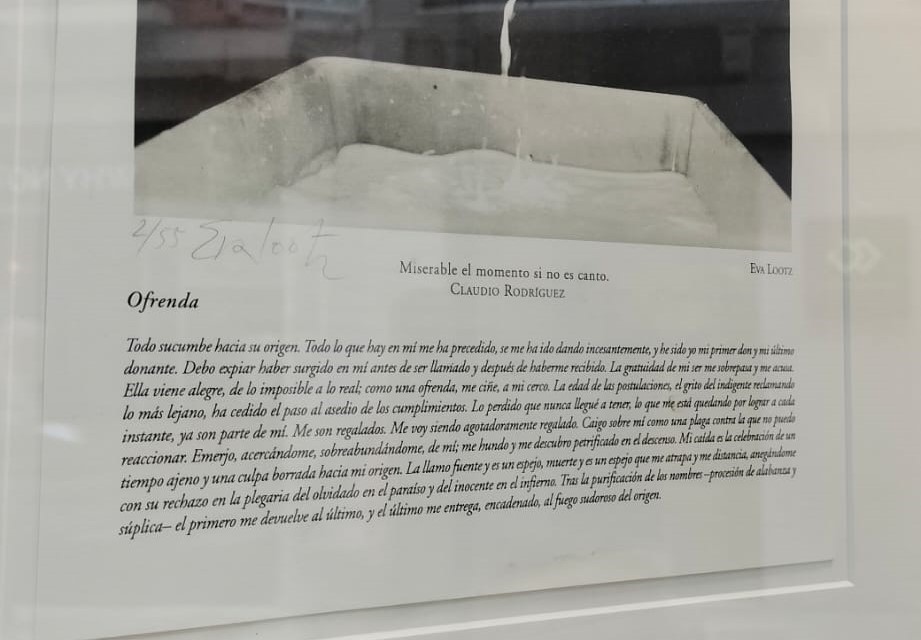 2/55 Eva Lootz
Miserable el momento si no es canto.
Claudio Rodríguez
Eva Lootz
Ofrenda
Todo sucumbe hacia su origen. Todo lo que hay en mí me ha precedido, se me ha ido dando incesantemente, y he sido yo mi primer don y mi último
donante. Debo expiar haber surgido en mí antes de ser llamado y después de haberme recibido. La gratuidad de mi ser me sobrepasa y me acusa.
Ella viene alegre, de lo imposible a lo real; como una ofrenda, me ciñe, a mi cerco. La edad de las postulaciones, el grito del indigente reclamando
lo más lejano, ha cedido el paso al asedio de los cumplimientos. Lo perdido que nunca llegué a tener, lo que me está quedando por lograr a cada
instante, ya son parte de mí. Me son regalados. Me voy siendo agotadoramente regalado. Caigo sobre mí como una plaga contra la que no puedo
reaccionar. Emerjo, acercándome, sobreabundándome, de mí; me hundo y me descubro petrificado en el descenso. Mi caída es la celebración de un
tiempo ajeno y una culpa borrada hacia mi origen. La llamo fuente y es un espejo, muerte y es un espejo que me atrapa y me distancia, anegándome
con su rechazo en la plegaria del olvidado en el paraíso y del inocente en el infierno. Tras la purificación de los nombres –procesión de alabanza y
súplica– el primero me devuelve al último, y el último me entrega, encadenado, al fuego sudoroso del origen.